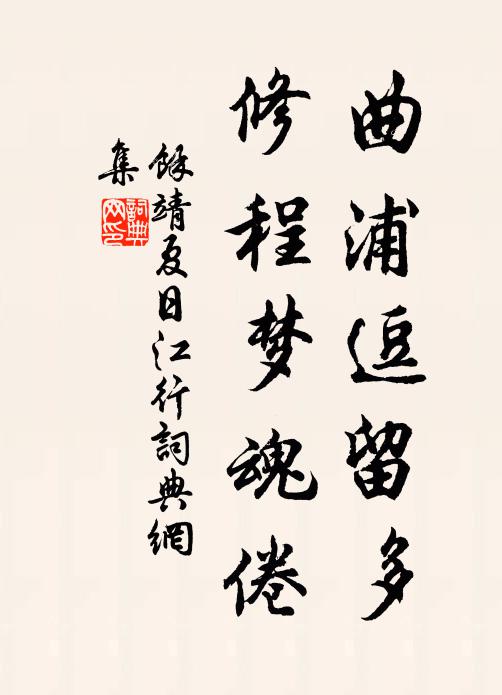 曲浦逗留多
修程梦魂倦
馀靖夏日江行詞典網
集
詞典网印